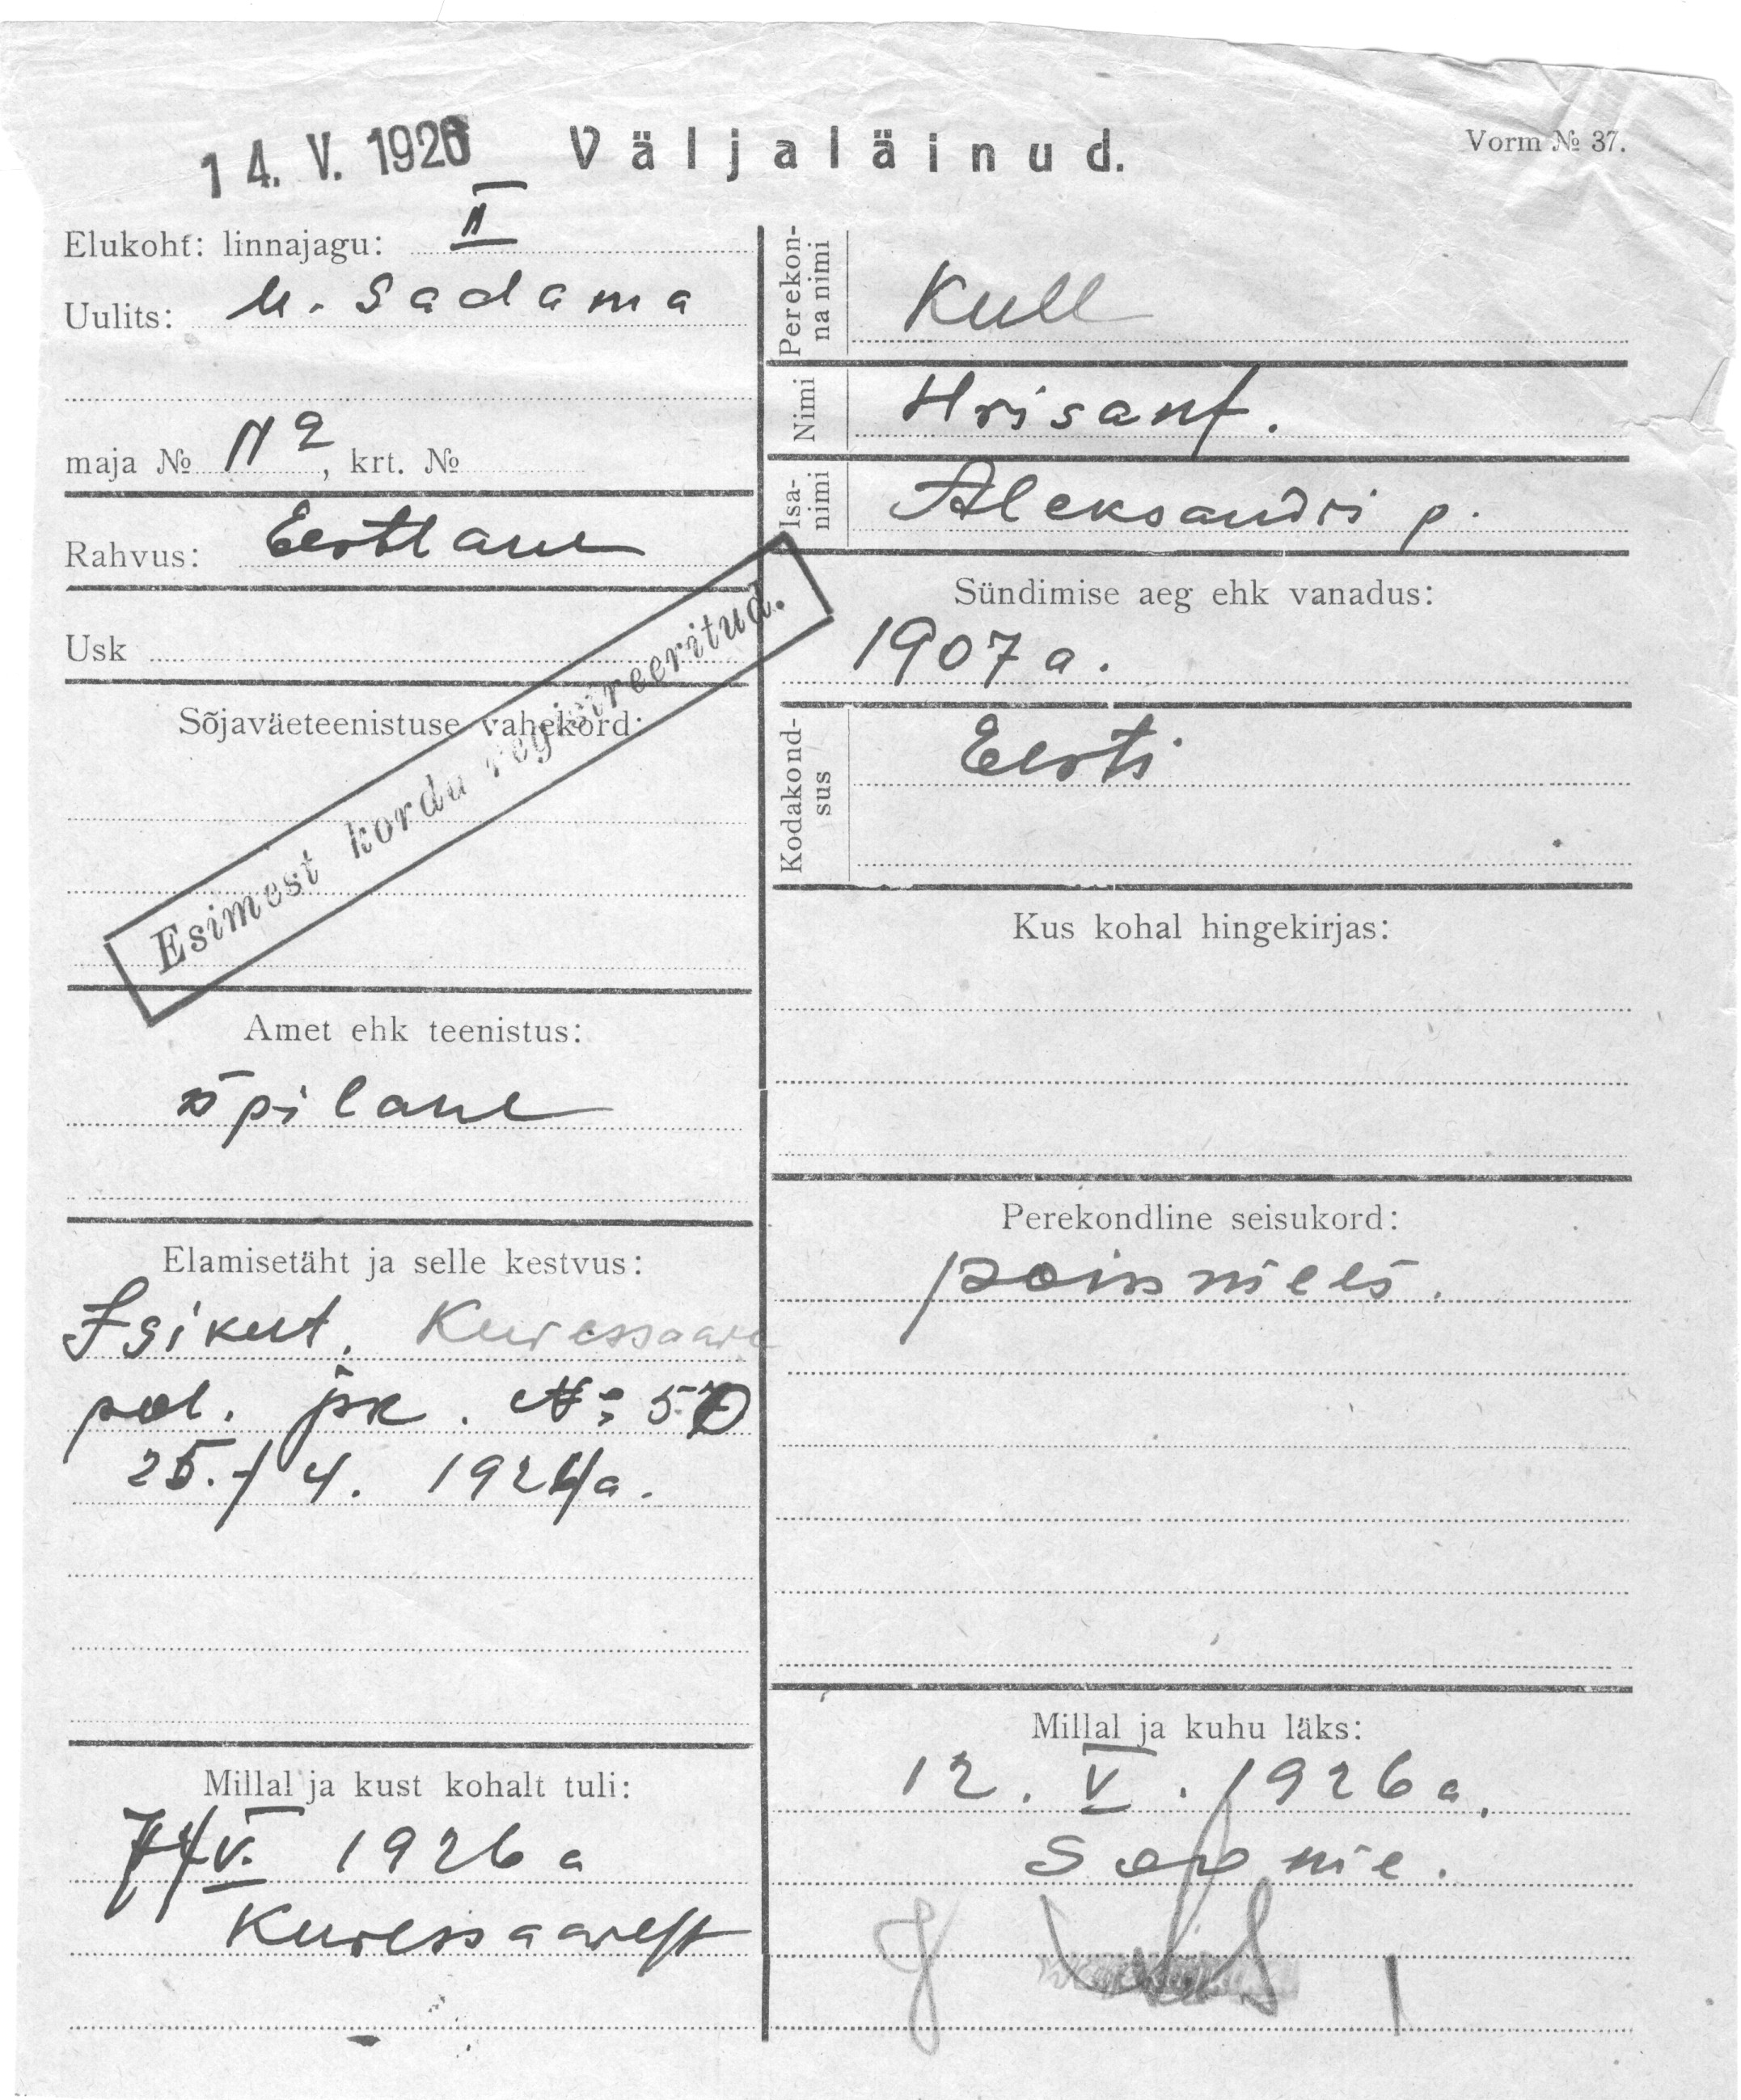 14. V. 1926 Väljaläinud.
Vorm № 37.
Elukoht: linnajagu: II
Uulits: U. Sadama
maja № 12, krt. №
Rahvus: Eestlane
Usk
Sõjaväeteenistuse vahekord:
Esimest korda registreeritud.
Amet ehk teenistus:
õpilane
Elamisetäht ja selle kestvus:
Isikut. Kuressaare
pol. jsk. №
25./4. 1926 a.
Millal ja kust kohalt tuli:
V. 1926 a
Kuressaarest
Perekonna nimi Kull
Nimi Hrisanf.
Isanimi Aleksandri p.
Sündimise aeg ehk vanadus:
1907 a.
Kodakondsus Eesti
Kus kohal hingekirjas:
Perekondline seisukord:
poissmees.
Millal ja kuhu läks:
12. V. 1926 a.
Soome.